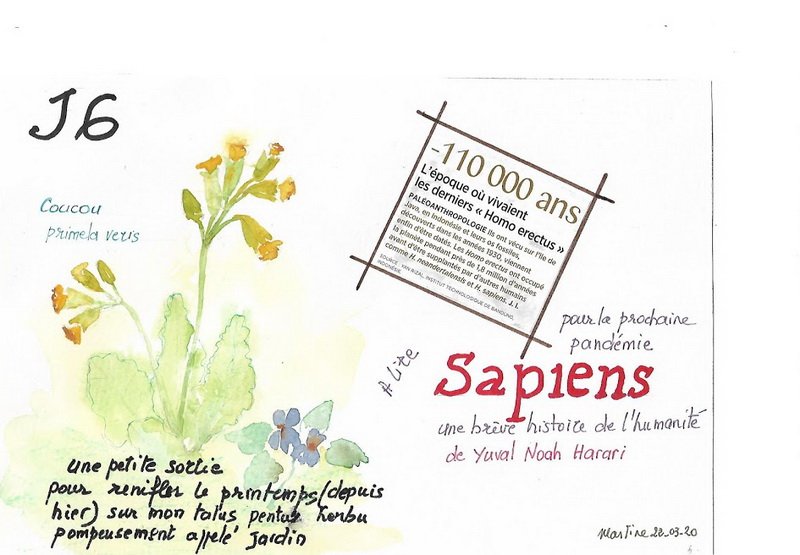 J6
Coucou
primela veris
-110 000 ans
L'époque où vivaient
les derniers « Homo erectus »
PALÉOANTHROPOLOGIE Ils ont vécu sur l'île de
Java, en Indonésie et leurs os fossiles,
découverts dans les années 1930, viennent
enfin d'être datés. Les Homo erectus ont occupé
la planète pendant près de 1,8 million d'années
avant d'être supplantés par d'autres humains
comme H. neandertalensis et H. sapiens. J. I.
SOURCE : YAN RIZAL, INSTITUT TECHNOLOGIQUE DE BANDUNG,
INDONÉSIE.
pour la prochaine
pandémie
A lire
Sapiens
une brève histoire de l'humanité
de Yuval Noah Harari
une petite sortie
pour renifler le printemps (depuis
hier) sur mon talus pentu herbu
pompeusement appelé jardin
Martine 22-03-20